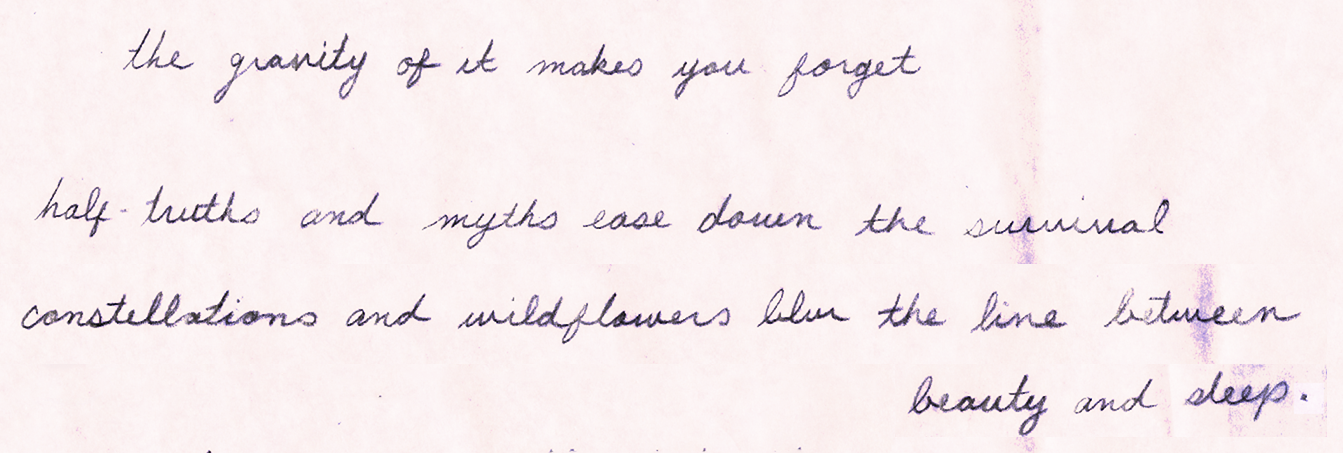 the gravity of it makes you forget
half-truths and myths ease down the survival
constellations and wildflowers blur the line between
beauty and sleep.